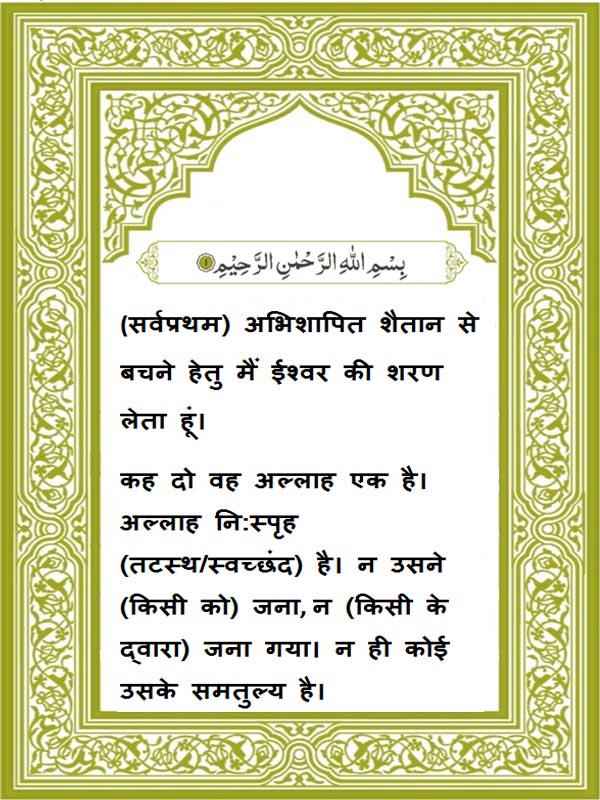 بِسْمِ اللّٰهِ الرَّحْمٰنِ الرَّحِيْمِ ۝١
(सर्वप्रथम) अभिशापित शैतान से
बचने हेतु मैं ईश्वर की शरण
लेता हूं।
कह दो वह अल्लाह एक है।
अल्लाह नि:स्पृह
(तटस्थ/स्वच्छंद) है। न उसने
(किसी को) जना, न (किसी के
द्वारा) जना गया। न ही कोई
उसके समतुल्य है।